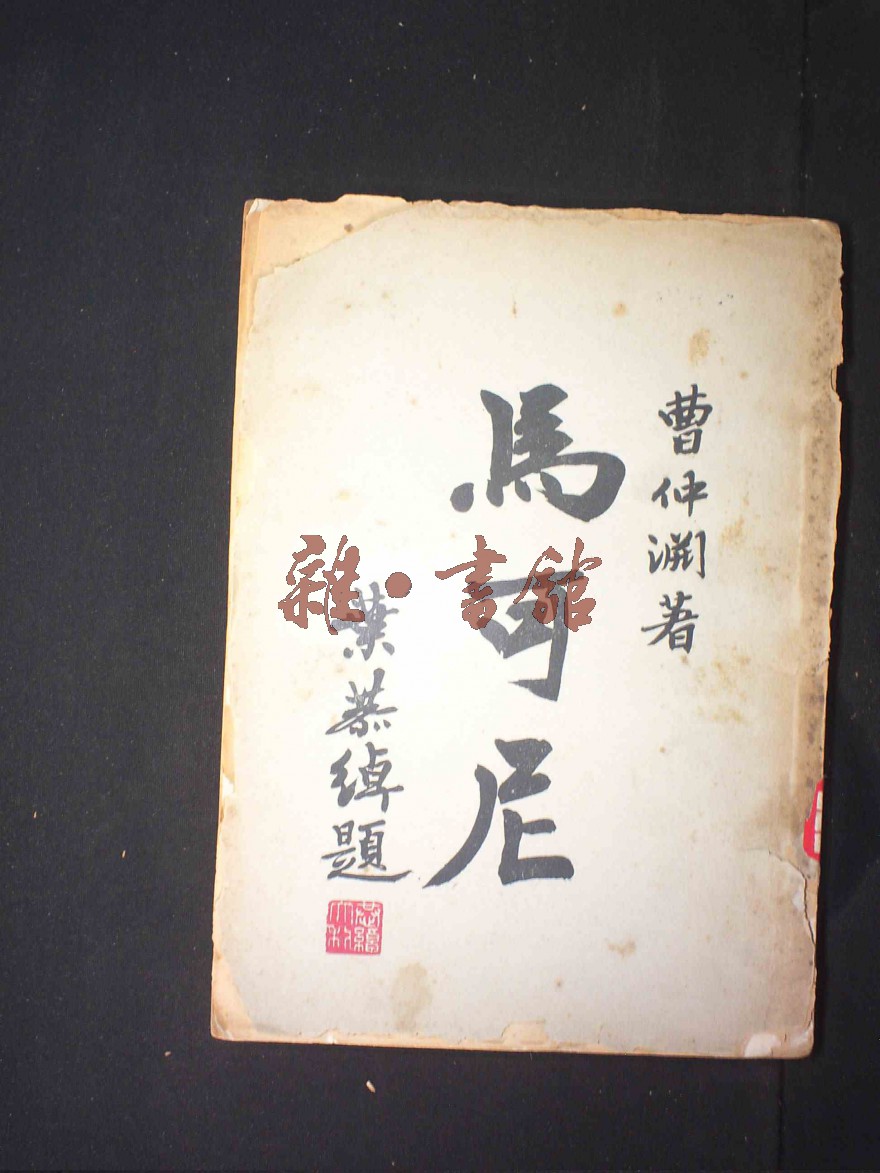 曹仲渊著
馬可尼
葉恭綽題
雜·書館